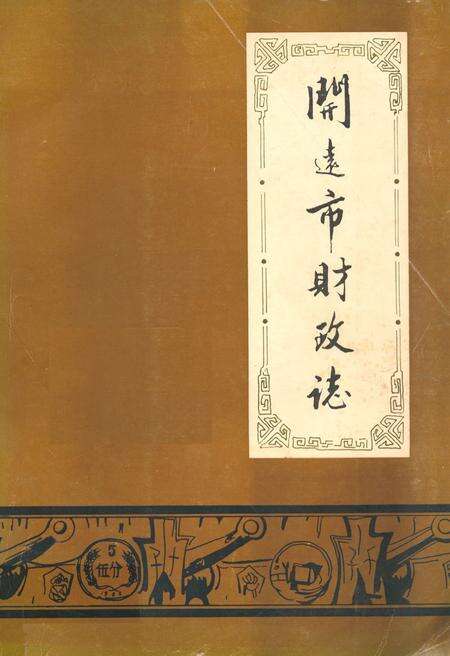 開遠市財政誌
5
伍分